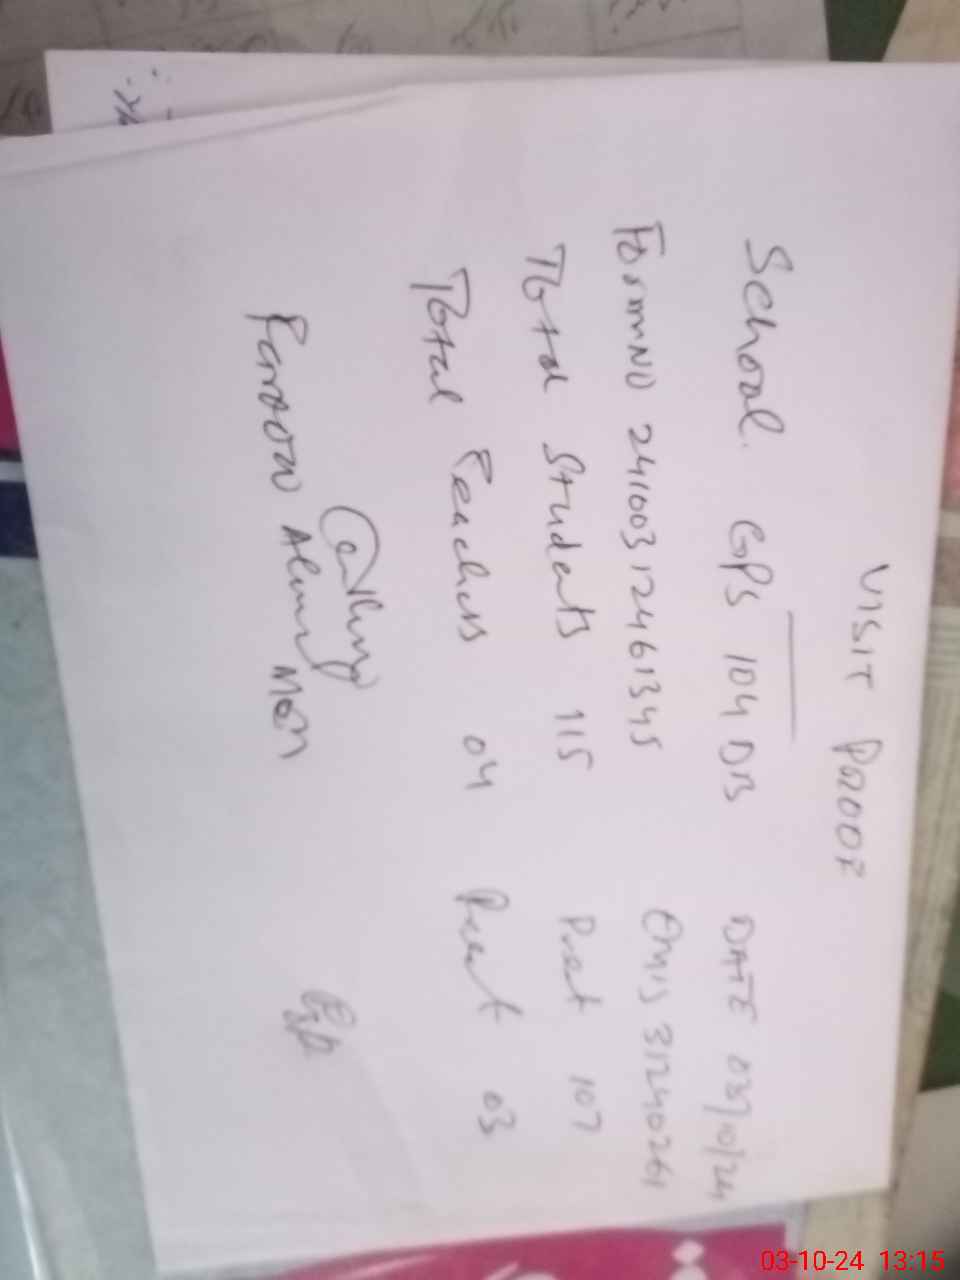 VISIT PROOF
School. GPS 104 DB DATE 03/10/24
FormNO 24100312461345 EMIS 31240261
Total Students 115 Preet 107
Total Teachers 04 Preet 03
Farooq Ahmed
03-10-24 13:15